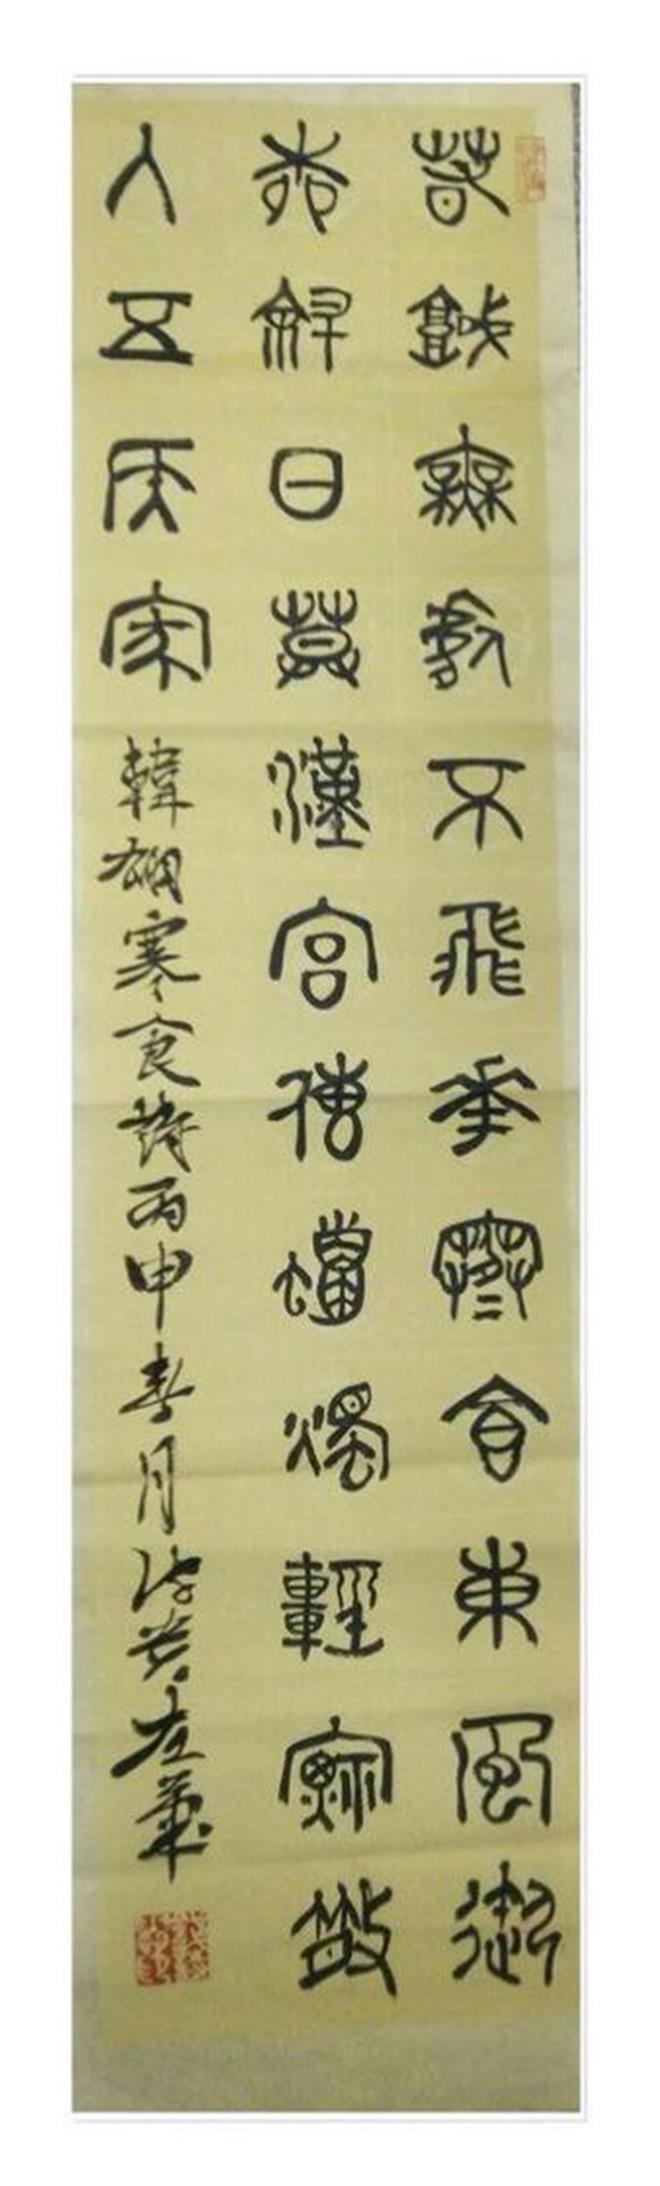 春城無處不飛花寒食東風御
柳斜日暮漢宮傳蠟燭輕煙散
入五侯家韓翃寒食詩丙申春月